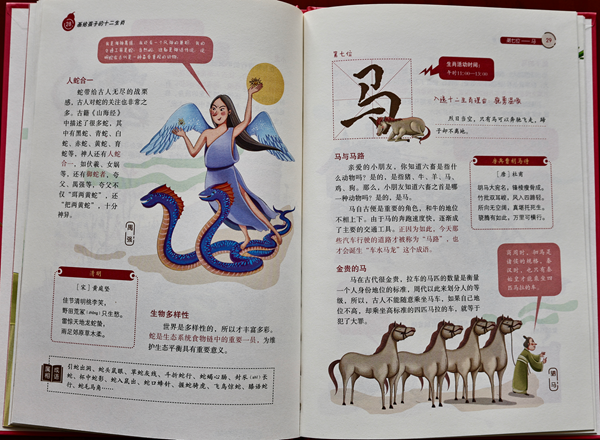 28
画给孩子的十二生肖
人蛇合一
蛇带给古人无尽的战栗
感，古人对蛇的关注也非常之
多。古籍《山海经》
中描述了很多蛇，其
中有黑蛇、青蛇、白
蛇、赤蛇、黄蛇、育
蛇等，神人还有人蛇
合一，如伏羲、女娲
等，还有御蛇者，夸
父、禺强等，夸父不
仅“珥两黄蛇”，还
“把两黄蛇”，十分
神异。
禺强
清明
［宋］黄庭坚
佳节清明桃李笑，
野田荒冢（zhǒng）只生愁。
雷惊天地龙蛇蛰，
雨足郊原草木柔。
生物多样性
世界是多样性的，所以才丰富多彩。
蛇是生态系统食物链中的重要一员，为维
护生态平衡具有重要意义。
成语
引蛇出洞、蛇头鼠眼、草蛇灰线、斗折蛇行、蛇蝎心肠、封豕（shǐ）长
蛇、杯中蛇影、蛇入鼠出、蛇口蜂针、握蛇骑虎、飞鸟惊蛇、膝语蛇
行、蛇毛马角……
第七位——马
29
第七位
马
生肖活动时间：
午时11:00—13:00
入选十二生肖理由
烈日当空，只有马可以奔驰飞走，蹄
子却不离地。
马与马路
亲爱的小朋友，你知道六畜是指什
么动物吗？是的，是指猪、牛、羊、马、
鸡、狗。那么，小朋友知道六畜之首是哪
一种动物吗？是的，是马。
马自古便是重要的角色，和牛的地位
不相上下。由于马的奔跑速度快，逐渐成
了主要的交通工具。正因为如此，今天那
些汽车行驶的道路才被称为“马路”，也
才会诞生“车水马龙”这个成语。
房兵曹胡马诗
［唐］杜甫
胡马大宛名，锋棱瘦骨成。
竹批双耳峻，风入四蹄轻。
所向无空阔，真堪托死生。
骁腾有如此，万里可横行。
金贵的马
马在古代很金贵，拉车的马匹的数量是衡量
一个人身份地位的标准，周代以此来划分人的等
级，所以，古人不能随意乘坐马车，如果自己地
位不高，却乘坐高标准的四匹马拉的车，就等于
犯了大罪。
商周时，驷马是
诸侯的规格，秦
汉时，也只有秦
始皇才能乘坐四
匹马拉的车。
骑马